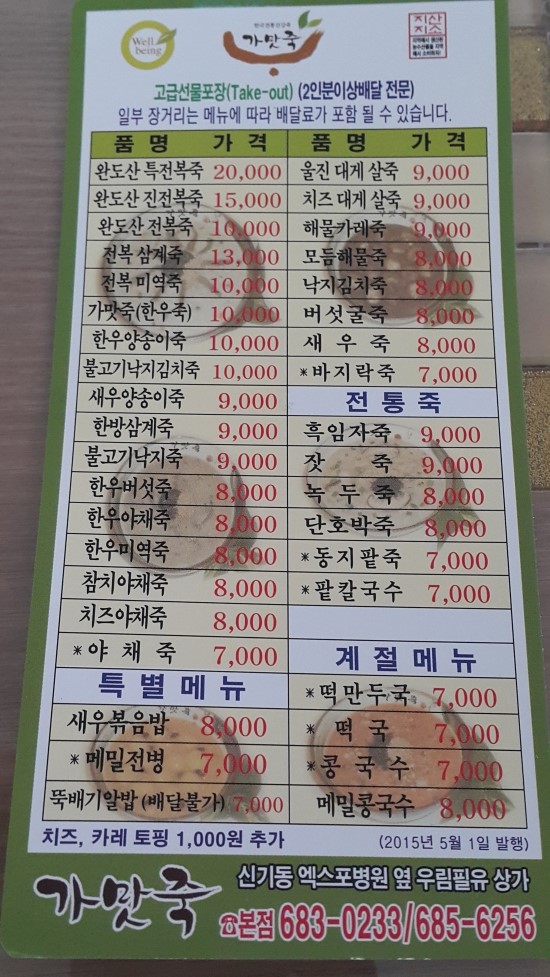 Well being
한국전통건강죽
가맛죽
지산지소
지역에서 생산된
농수산물을 지역
에서 소비하자!
고급선물포장(Take-out) (2인분이상배달 전문)
일부 장거리는 메뉴에 따라 배달료가 포함 될 수 있습니다.
품 명 가 격
완도산 특전복죽 20,000
완도산 진전복죽 15,000
완도산 전복죽 10,000
전복 삼계죽 13,000
전복 미역죽 10,000
가맛죽(한우죽) 10,000
한우양송이죽 10,000
불고기낙지김치죽 10,000
새우양송이죽 9,000
한방삼계죽 9,000
불고기낙지죽 9,000
한우버섯죽 8,000
한우야채죽 8,000
한우미역죽 8,000
참치야채죽 8,000
치즈야채죽 8,000
※야 채 죽 7,000
특 별 메 뉴
새우볶음밥 8,000
※메밀전병 7,000
뚝배기알밥 (배달불가) 7,000
품 명 가 격
울진 대게 살죽 9,000
치즈 대게 살죽 9,000
해물카레죽 9,000
모듬해물죽 8,000
낙지김치죽 8,000
버섯굴죽 8,000
새 우 죽 8,000
※바지락죽 7,000
전 통 죽
흑임자죽 9,000
잣 죽 9,000
녹 두 죽 8,000
단호박죽 8,000
※동지팥죽 7,000
※팥칼국수 7,000
계 절 메 뉴
※떡만두국 7,000
※ 떡 국 7,000
※콩 국 수 7,000
메밀콩국수 8,000
치즈, 카레 토핑 1,000원 추가
(2015년 5월 1일 발행)
가맛죽
신기동 엑스포병원 옆 우림필유 상가
☎본점 683-0233/685-6256